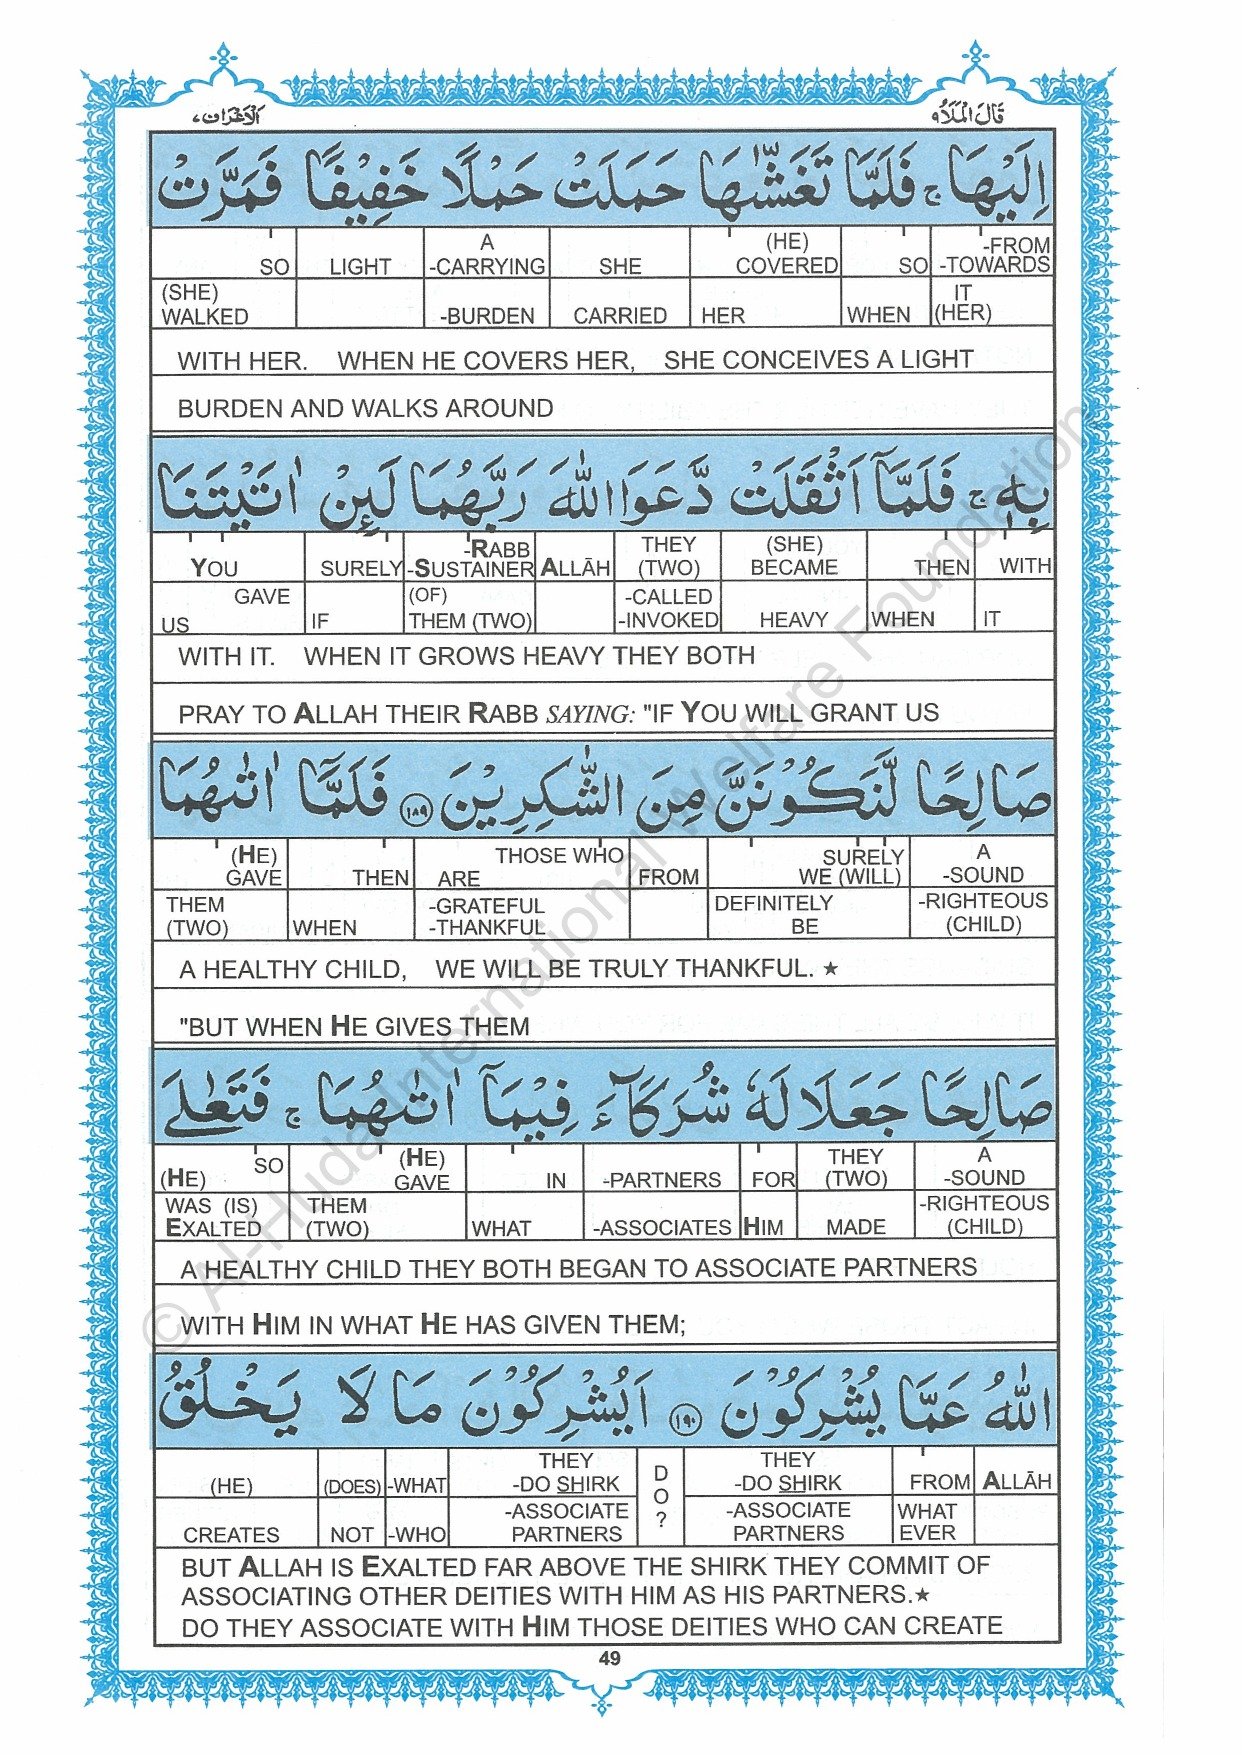 قَالَ الْمَلَاُ ٩
الْاَعْرَاف ٧
اِلَيْهَا ۚ فَلَمَّا تَغَشّٰىهَا حَمَلَتْ حَمْلًا خَفِيْفًا فَمَرَّتْ
SO LIGHT A -CARRYING SHE (HE) COVERED SO -FROM -TOWARDS
(SHE) WALKED -BURDEN CARRIED HER WHEN IT (HER)
WITH HER. WHEN HE COVERS HER, SHE CONCEIVES A LIGHT
BURDEN AND WALKS AROUND
بِهٖ ۚ فَلَمَّآ اَثْقَلَتْ دَّعَوَا اللّٰهَ رَبَّهُمَا لَىِٕنْ اٰتَيْتَنَا
YOU SURELY -RABB -SUSTAINER ALLĀH THEY (TWO) (SHE) BECAME THEN WITH
GAVE US IF (OF) THEM (TWO) -CALLED -INVOKED HEAVY WHEN IT
WITH IT. WHEN IT GROWS HEAVY THEY BOTH
PRAY TO ALLAH THEIR RABB SAYING: "IF YOU WILL GRANT US
صَالِحًا لَّنَكُوْنَنَّ مِنَ الشّٰكِرِيْنَ ١٨٩ فَلَمَّآ اٰتٰىهُمَا
(HE) GAVE THEN THOSE WHO ARE FROM SURELY WE (WILL) A -SOUND
THEM (TWO) WHEN -GRATEFUL -THANKFUL DEFINITELY BE -RIGHTEOUS (CHILD)
A HEALTHY CHILD, WE WILL BE TRULY THANKFUL. ★
"BUT WHEN HE GIVES THEM
صَالِحًا جَعَلَا لَهٗ شُرَكَآءَ فِيْمَآ اٰتٰىهُمَا ۚ فَتَعٰلَى
(HE) SO (HE) GAVE IN -PARTNERS FOR THEY (TWO) A -SOUND
WAS (IS) EXALTED THEM (TWO) WHAT -ASSOCIATES HIM MADE -RIGHTEOUS (CHILD)
A HEALTHY CHILD THEY BOTH BEGAN TO ASSOCIATE PARTNERS
WITH HIM IN WHAT HE HAS GIVEN THEM;
اللّٰهُ عَمَّا يُشْرِكُوْنَ ١٩٠ اَيُشْرِكُوْنَ مَا لَا يَخْلُقُ
(HE) (DOES) -WHAT THEY -DO SHIRK DO? THEY -DO SHIRK FROM ALLĀH
CREATES NOT -WHO -ASSOCIATE PARTNERS -ASSOCIATE PARTNERS WHAT EVER
BUT ALLAH IS EXALTED FAR ABOVE THE SHIRK THEY COMMIT OF
ASSOCIATING OTHER DEITIES WITH HIM AS HIS PARTNERS.★
DO THEY ASSOCIATE WITH HIM THOSE DEITIES WHO CAN CREATE
49
© Al-Huda International Welfare Foundation